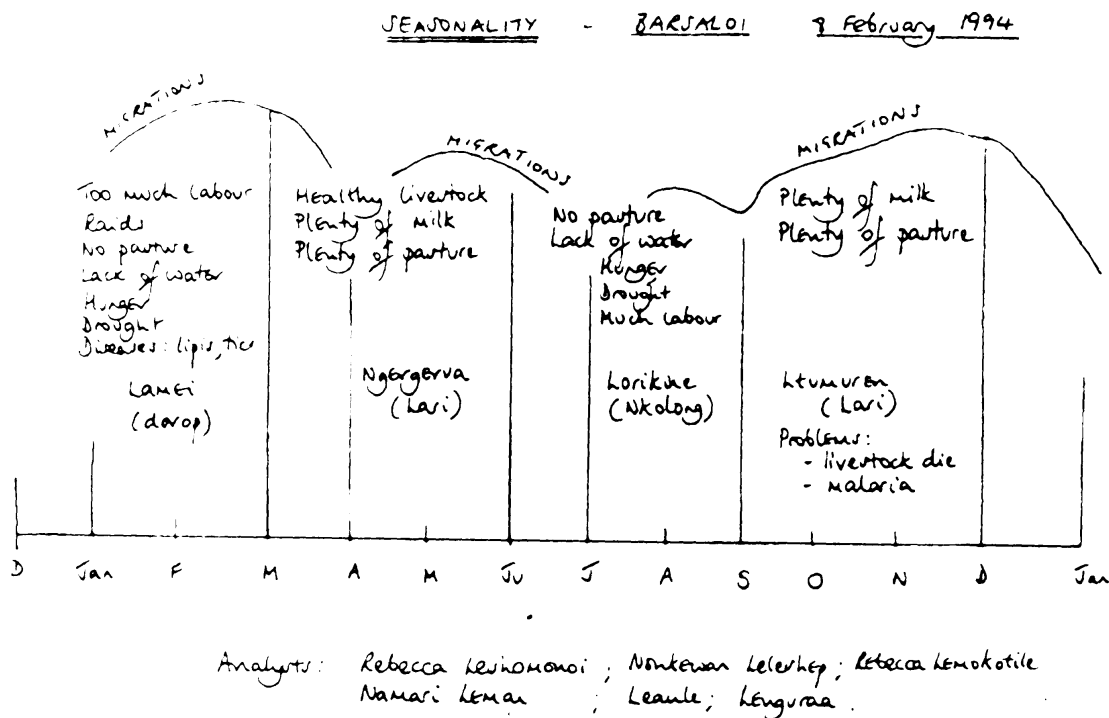 SEASONALITY - BARSALOI 8 February 1994
MIGRATIONS
MIGRATIONS
MIGRATIONS
Too much labour
Raids
No pasture
Lack of water
Hunger
Drought
Diseases: lipis, tics
LAMEI
(dorop)
Healthy livestock
Plenty of milk
Plenty of pasture
Ngergerua
(Lari)
No pasture
Lack of water
Hunger
Drought
Much labour
Lorikine
(Nkolong)
Plenty of milk
Plenty of pasture
Ltumuren
(Lari)
Problems:
- livestock die
- malaria
D Jan F M A M Ju J A S O N D Jan
Analysts: Rebecca ; Nonkewan Lelerhep; Rebecca Lemokotile
Namari ; ; Lenguraa.